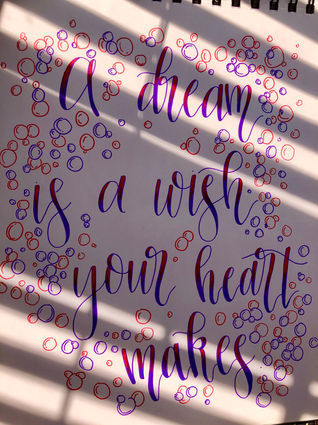 A dream
is a wish
your heart
makes